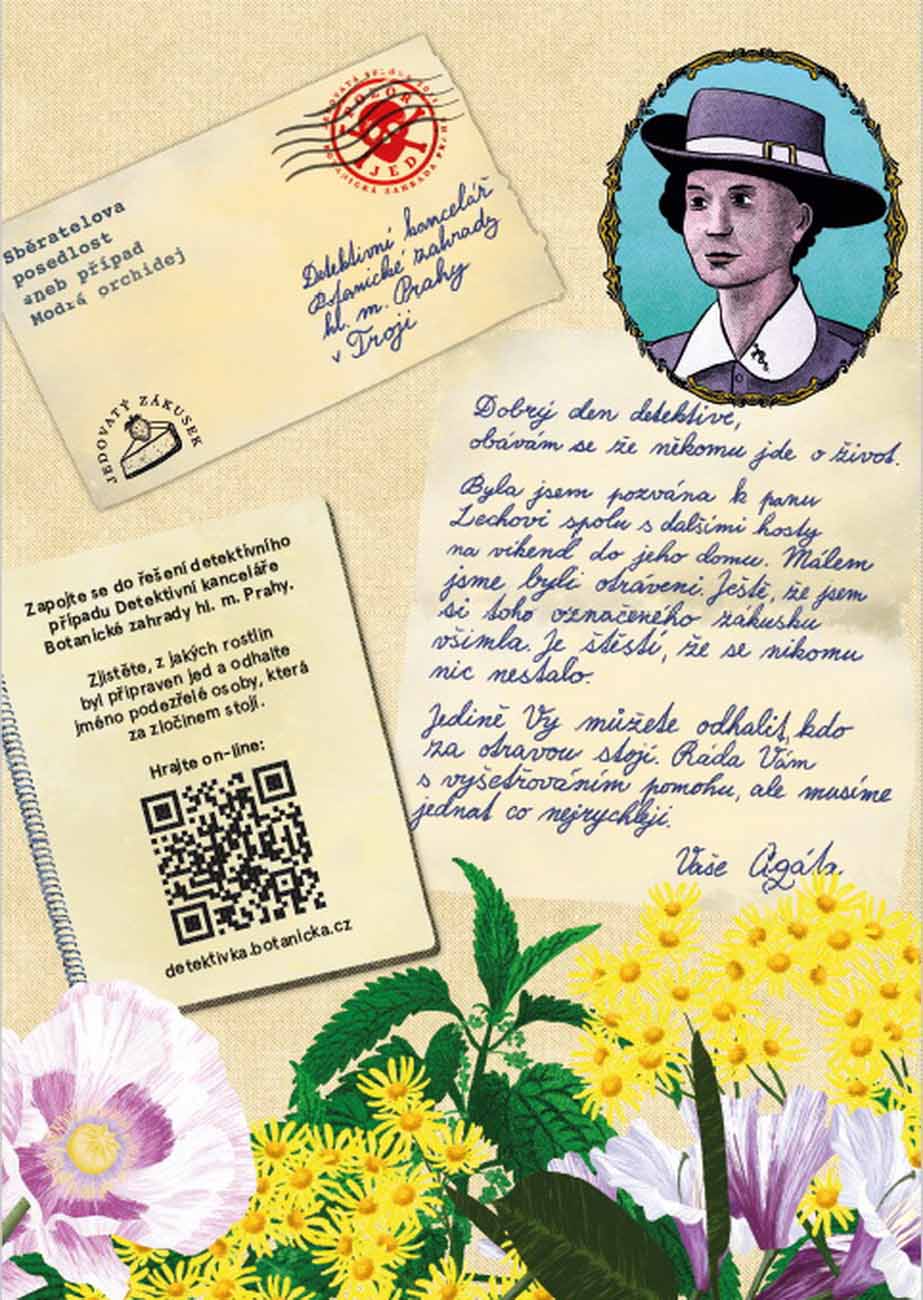 POZOR!
JEDY
Sběratelova
posedlost
aneb případ
Modrá orchidej
Detektivní kancelář
Botanické zahrady
hl. m. Prahy
v Troji
JEDOVATÝ ZÁKUSEK
Dobrý den detektive,
obávám se že někomu jde o život.
Byla jsem pozvána k panu
Lechovi spolu s dalšími hosty
na víkend do jeho domu. Málem
jsme byli otráveni. Ještě, že jsem
si toho označeného zákusku
všimla. Je štěstí, že se nikomu
nic nestalo.
Jedině Vy můžete odhalit, kdo
za otravou stojí. Ráda Vám
s vyšetřováním pomohu, ale musíme
jednat co nejrychleji.
Vaše Agáta.
Zapojte se do řešení detektivního
případu Detektivní kanceláře
Botanické zahrady hl. m. Prahy.
Zjistěte, z jakých rostlin
byl připraven jed a odhalte
jméno podezřelé osoby, která
za zločinem stojí.
Hrajte on-line:
detektivka.botanicka.cz